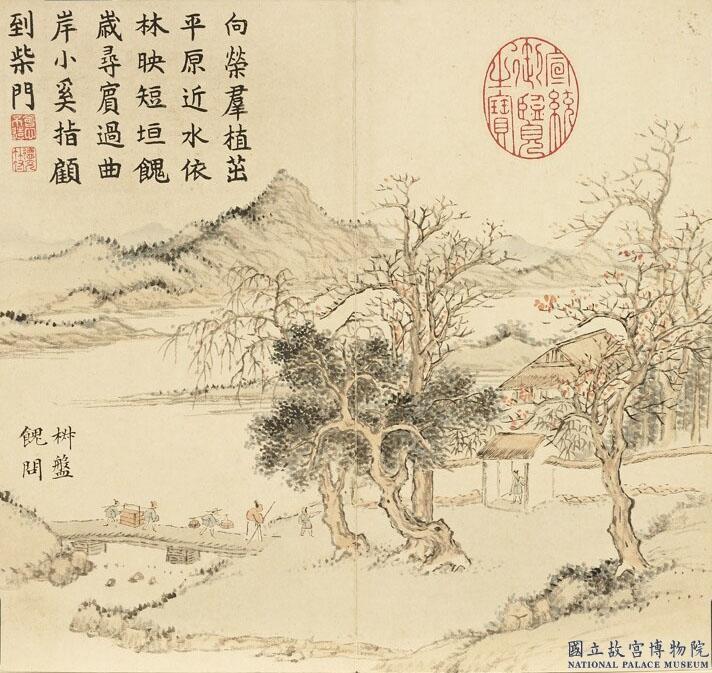 向榮羣植茁
平原近水依
林映短垣餽
嵗尋賓過曲
岸小奚指顧
到柴門
宣統
御覽
之寶
椒盤
餽問
國立故宮博物院
NATIONAL PALACE MUSEUM